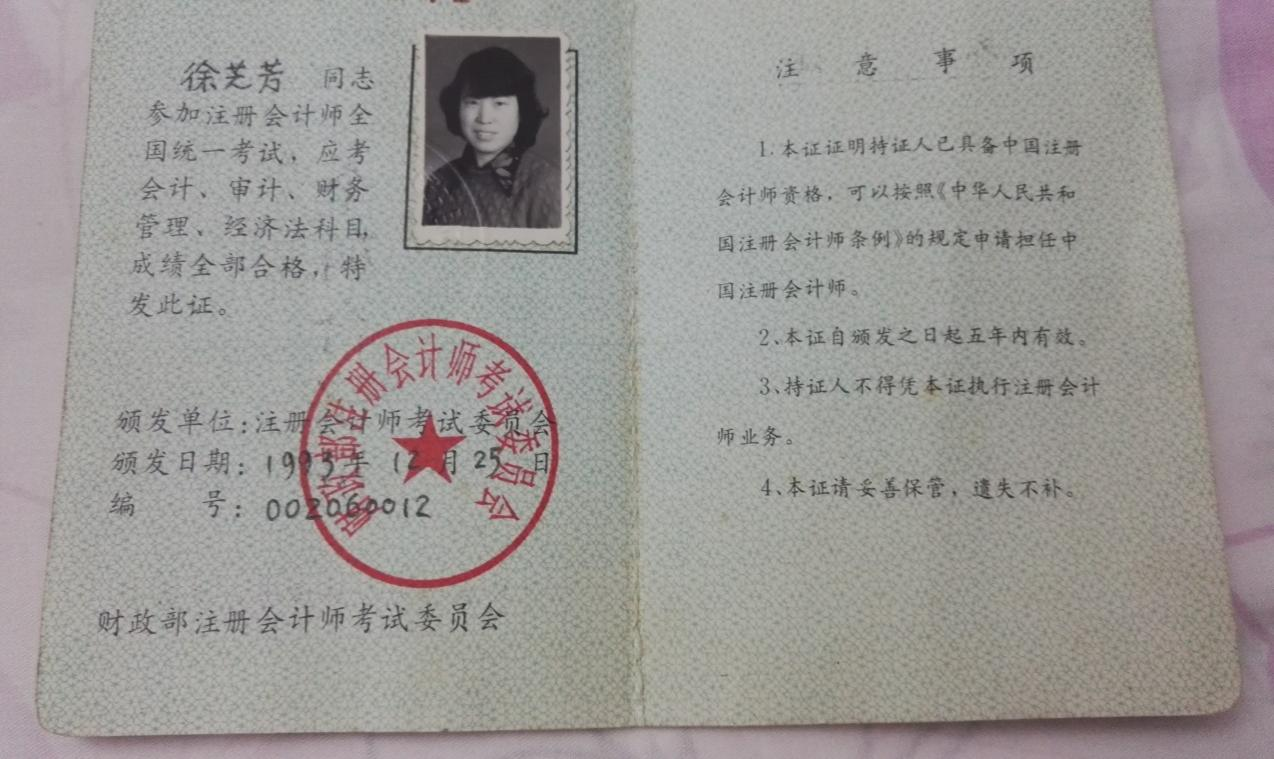 徐芝芳 同志
参加注册会计师全
国统一考试，应考
会计、审计、财务
管理、经济法科目，
成绩全部合格，特
发此证。
颁发单位：注册会计师考试委员会
颁发日期：1993年12月25日
编 号：002060012
财政部注册会计师考试委员会
财政部注册会计师考试委员会
注意事项
1.本证证明持证人已具备中国注册
会计师资格，可以按照《中华人民共和
国注册会计师条例》的规定申请担任中
国注册会计师。
2、本证自颁发之日起五年内有效。
3、持证人不得凭本证执行注册会计
师业务。
4、本证请妥善保管，遗失不补。